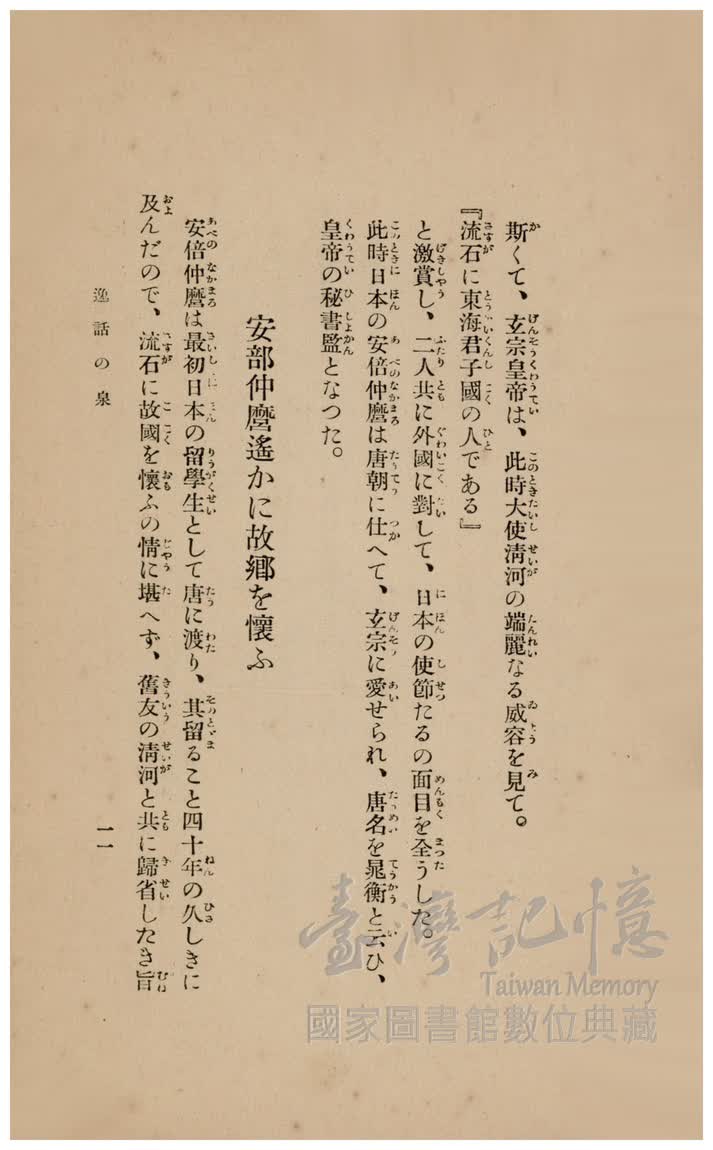 斯くて、玄宗皇帝は、此時大使淸河の端麗なる威容を見て。
『流石に東海君子國の人である』
と激賞し、二人共に外國に對して、日本の使節たるの面目を全うした。
此時日本の安倍仲麿は唐朝に仕へて、玄宗に愛せられ、唐名を晁衡と云ひ、
皇帝の秘書監となつた。
安部仲麿遙かに故鄕を懷ふ
安倍仲麿は最初日本の留學生として唐に渡り、其留ること四十年の久しきに
及んだので、流石に故國を懷ふの情に堪へず、舊友の淸河と共に歸省したき旨
逸話の泉
一一
臺灣記憶
Taiwan Memory
國家圖書館數位典藏